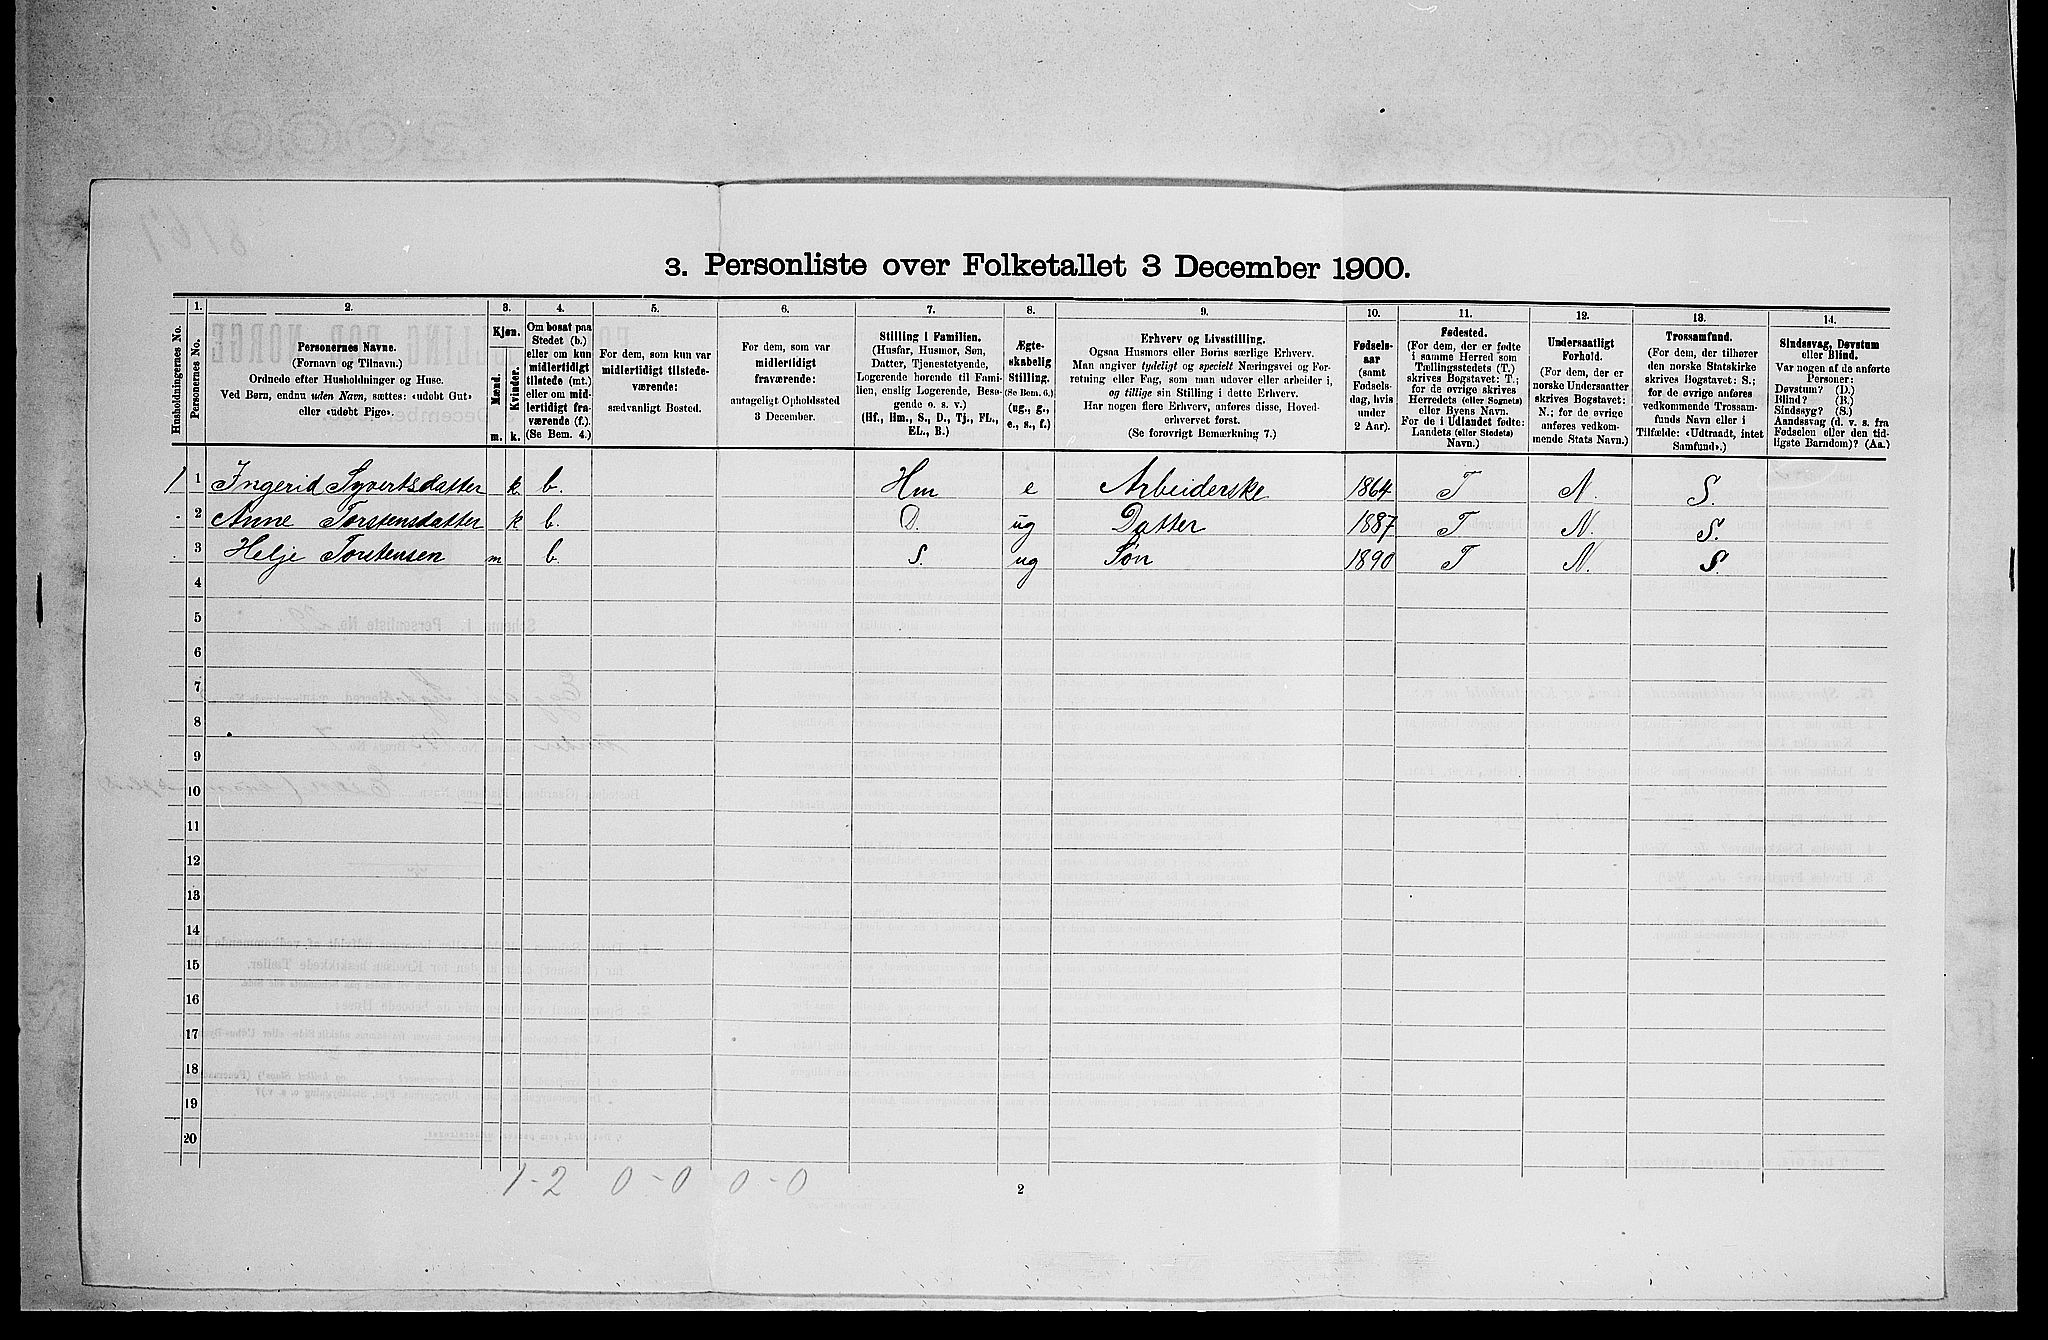 3. Personliste over Folketallet 3 December 1900.
Husholdningernes No.
1.
Personernes No.
2.
Personernes Navne.
(Fornavn og Tilnavn.)
Ordnede efter Husholdninger og Huse.
Ved Børn, endnu uden Navn, sættes: «udøbt Gut»
eller «udøbt Pige».
3.
Kjøn.
Mænd.
Kvinder.
m.
k.
4.
Om bosat paa
Stedet (b.)
eller om kun
midlertidigt
tilstede (mt.)
eller om mid-
lertidigt fra-
værende (f.).
(Se Bem. 4.)
5.
For dem, som kun var
midlertidigt tilstede-
værende:
sædvanligt Bosted.
6.
For dem, som var
midlertidigt
fraværende:
antageligt Opholdssted
3 December.
7.
Stilling i Familien.
(Husfar, Husmor, Søn,
Datter, Tjenestetyende,
Logerende hørende til Fami-
lien, enslig Logerende, Besø-
gende o. s. v.)
(Hf., Hm., S., D., Tj., FL.,
EL., B.)
8.
Ægte-
skabelig
Stilling.
(Se Bem. 6.)
(ug., g.,
e., s., f.)
9.
Erhverv og Livsstilling.
Ogsaa Husmors eller Børns særlige Erhverv.
Man angiver tydeligt og specielt Næringsvei og For-
retning eller Fag, som man udøver eller arbeider i,
og tillige sin Stilling i dette Erhverv.
Har nogen flere Erhverv, anføres disse, Hoved-
erhvervet først.
(Se forøvrigt Bemærkning 7.)
10.
Fødsels-
aar
(samt
Fødsels-
dag, hvis
under
2 Aar).
11.
Fødested.
(For dem, der er fødte
i samme Herred som
Tællingsstedets (T.)
skrives Bogstavet: T.;
for de øvrige skrives
Herredets (eller Sognets)
eller Byens Navn.
For de i Udlandet fødte:
Landets (eller Stedets)
Navn.)
12.
Undersaatligt
Forhold.
(For dem, der er
norske Undersaatter
skrives Bogstavet:
N.; for de øvrige
anføres vedkom-
mende Stats Navn.)
13.
Trossamfund.
(For dem, der tilhører
den norske Statskirke
skrives Bogstavet: S.;
for de øvrige anføres
vedkommende Trossam-
funds Navn eller i
Tilfælde: «Udtraadt, intet
Samfund».)
14.
Sindssvag, Døvstum
eller Blind.
Var nogen af de anførte
Personer:
Døvstum? (D.)
Blind? (B.)
Sindssyg? (S.)
Aandssvag (d. v. s. fra
Fødselen eller den tid-
ligste Barndom)? (Aa.)
1 1 Ingerid Syvertsdatter k b. Hm e Arbeiderske 1864 T N. S.
2 Anne Torstensdatter k b. D. ug Datter 1887 T N. S.
3 Helje Torstensen m b. S. ug Søn 1890 T N. S.
4
5
6
7
8
9
10
11
12
13
14
15
16
17
18
19
20
1-2 0-0 0-0
2